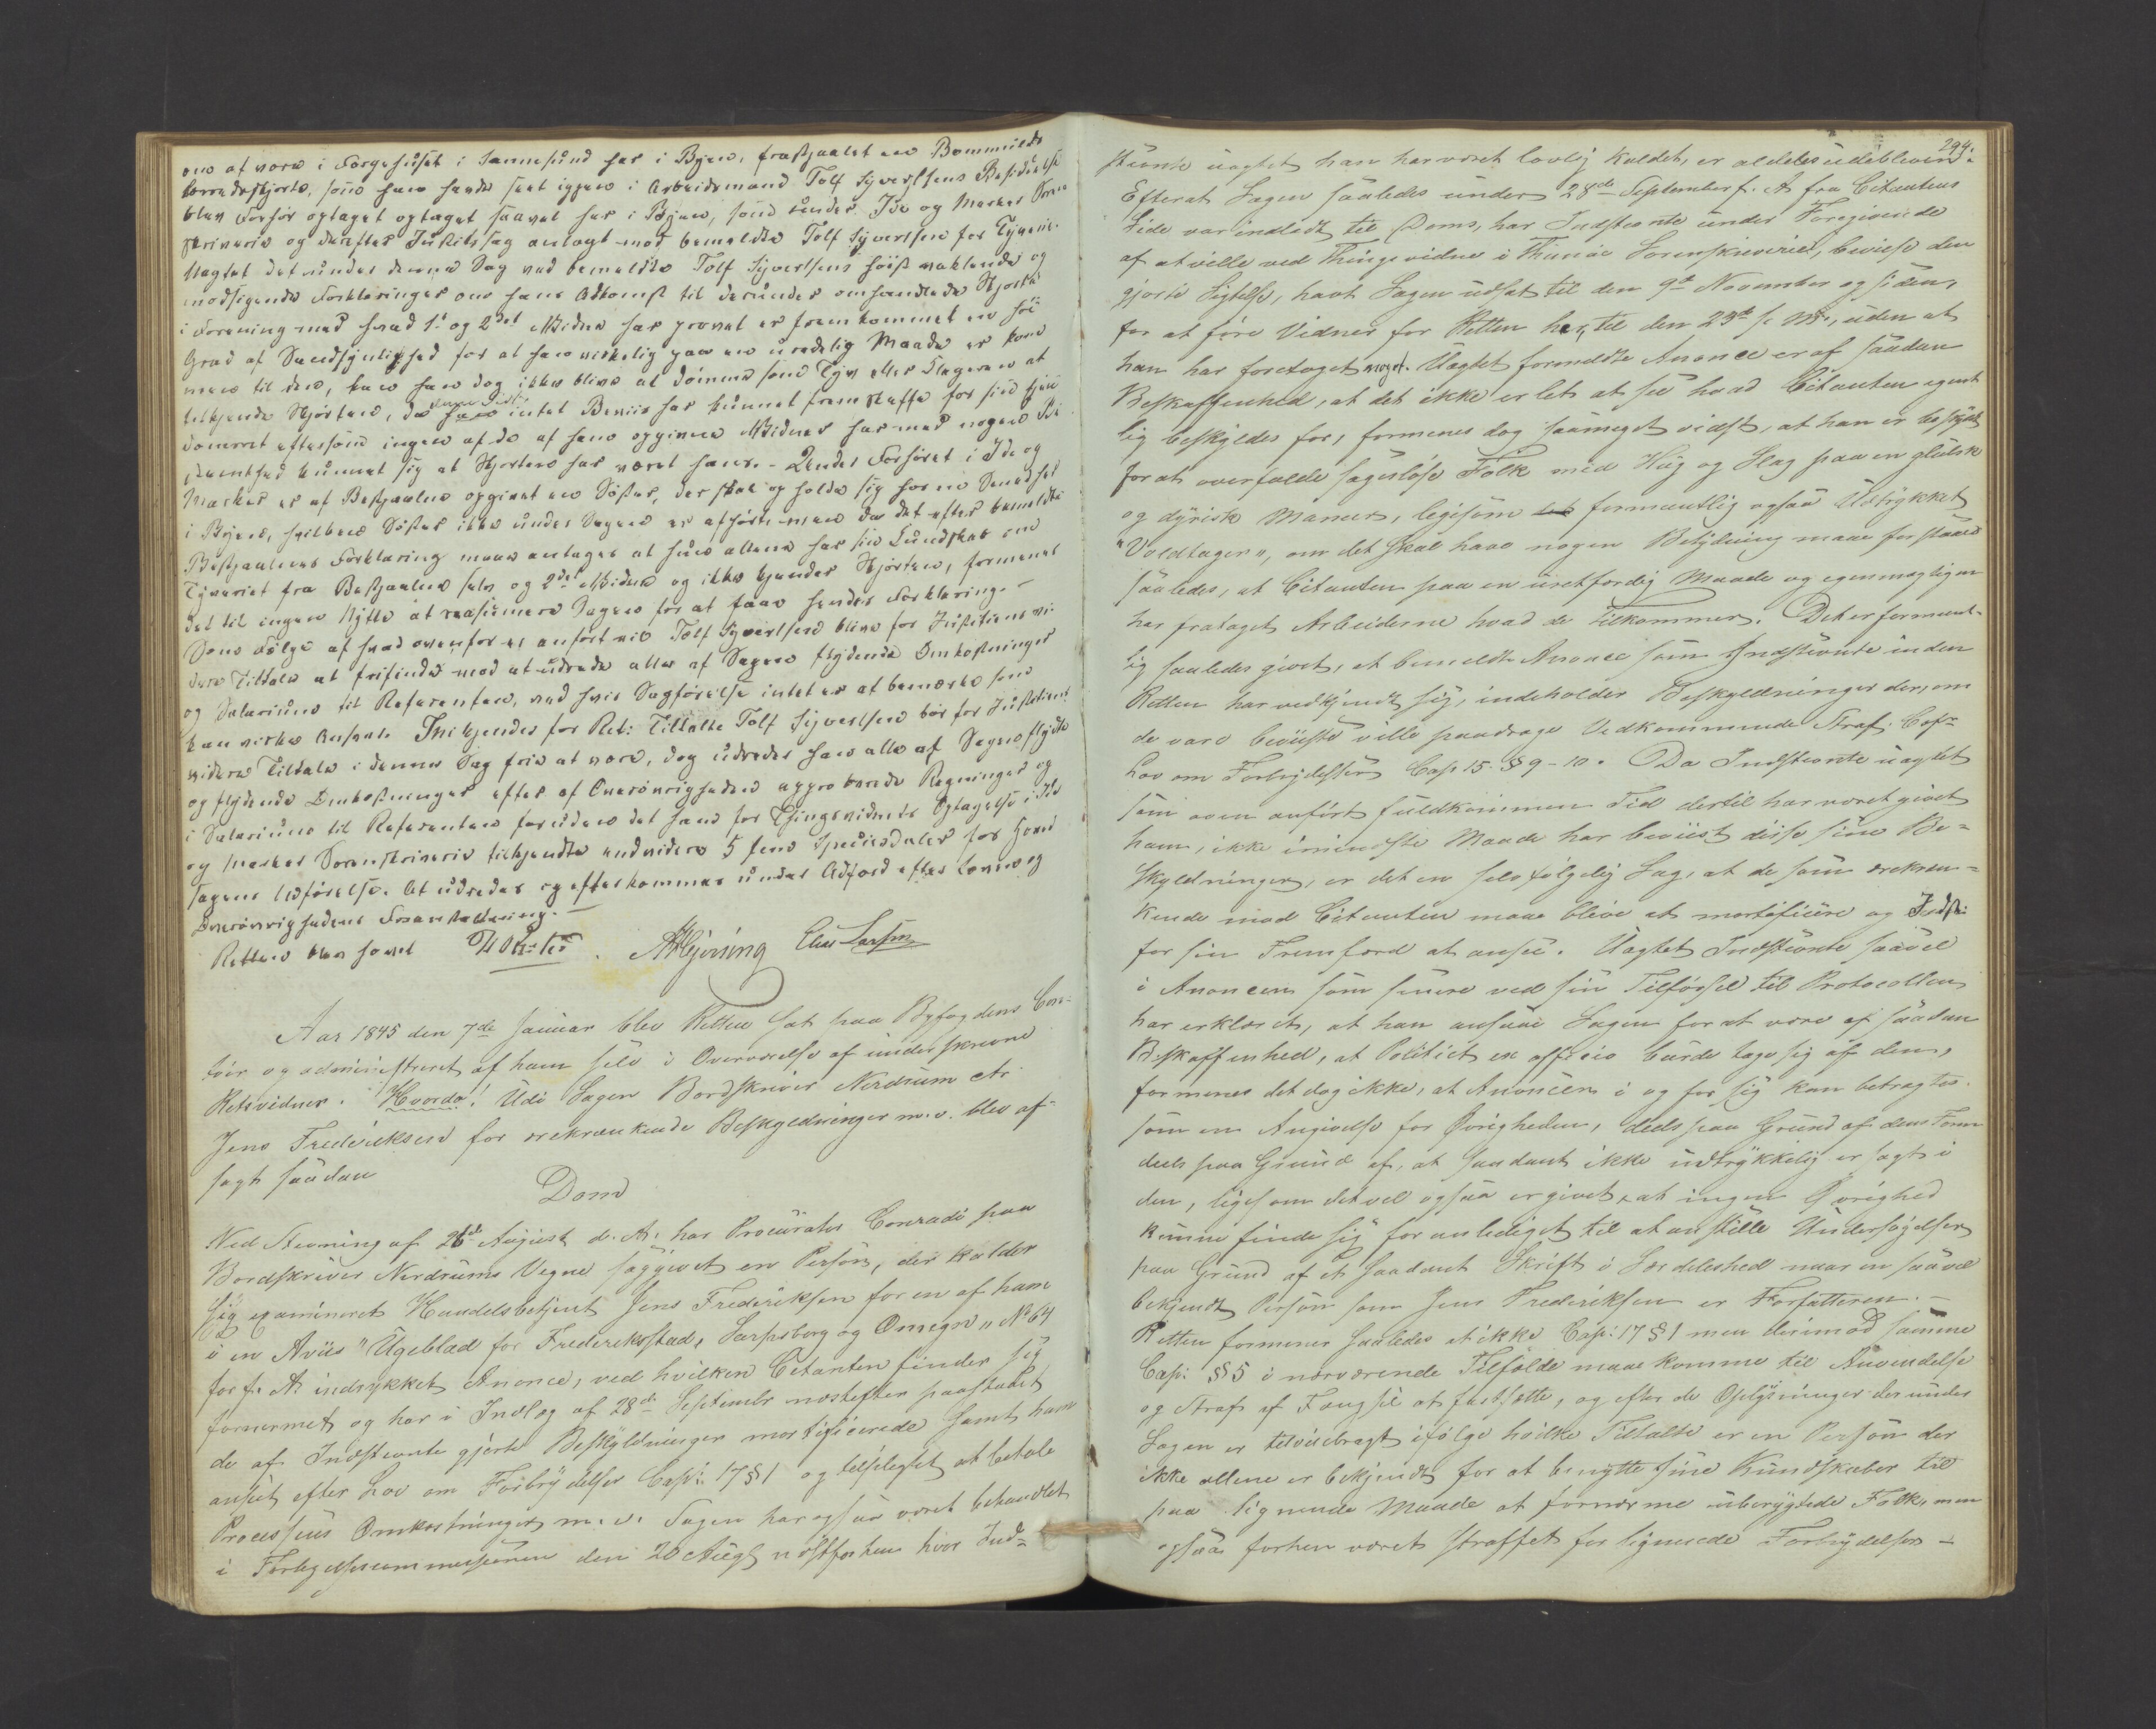 om at være i Sorgehuset i Sannesund her i Byen, frastjaalet en Bommulds
lærredsskjorte, som han havde seet igjen i Arbeidsmand Tolf Syverthsens Besiddelse
blev Forhør optaget optaget saavel her i Byen, som under Ide og Markers Soren
skriveri og derefter Justitssag anlagt mod bemeldte Tolf Syverthsen for Tyverie.
Uagtet det under denne Sag ved bemeldte Tolf Syverthsens høist vaklende og
modsigende Forklaringer om hans Adkomst til derunder omhandlede Skjorte
i Forening med hvad 1ste og 2det Vidne har provet er fremkommet en høi
Grad af Sandsynlighed for at han virkelig paa en uredelig Maade er kom
men til den, kan han dog ikke blive at dømme som Tyv eller Klageren at
tilkjende Skjorten, da denne Sidste intet Beviis har kunnet fremskaffe for sin Eien
domsret eftersom ingen af de af ham opgivne Vidner har med nogen Be
stemthed kunnet sige at Skjorten har været hans. - Under Forhøret i Ide og
Marker er af Bestjaalne opgivet en Søster, der skal og holde sig for en Sandhed
i Byen, hvilken Søster ikke under Sagen er afhørt men da det efter bemeldte
Bestjaalnes Forklaring maae antages at hun allene har sin Kundskab om
Tyveriet fra Bestjaalne selv og 2det Vidne og ikke kjender Skjorten, formenes
det til ingen Nytte at reassumere Sagen for at faae hendes Forklaring. -
Som Følge af hvad ovenfor er anført vil Tolf Syverthsen blive for Justitiens vi-
dere Tiltale at frifinde mod at udrede alle af Sagen flydende Omkostninger
og Salarium til Referenten, ved hvis Sagførelse intet er at bemærke som
kan virke Ansvar. Thi kjendes for Ret: Tiltalte Tolf Syverthsen bør for Justitiens
videre Tiltale i denne Sag frie at være, dog udreder han alle af Sagen flydte
og flydende Omkostninger efter af Overøvrigheden approberede Regninger og
i Salarium til Referenten foruden det ham for Thingsvidnets Optagelse i Ide
og Marker Sorenskriverie tilkjendte endvidere 5 fem Speciesdaler for Hoved
sagens Udførelse. At udredes og efterkommes under Adfærd efter Loven og
Overøvrighedens Foranstaltning. -
Retten blev hævet ALGjerving Elias Larsen
Aar 1845 den 7de Januar blev Retten sat paa Byfogdens Con-
toir og administreret af ham selv i Overværelse af underskrevne
Retsvidner. Hvorda! Udi Sagen Bordskriver Nerdrum ctr.
Jens Frederiksen for ærekrænkende Beskyldninger m.v. blev af-
sagt saadan
Dom
Ved Stevning af 26de August d. A. har Procurator Conradi paa
Bordskriver Nerdrums Vegne sagsøgt en Person, der kalder
sig examineret Handelsbetjent Jens Frederiksen for en af ham
i en Aviis "Ugeblad for Frederiksstad, Sarpsborg og Omegn" No 64
for f. A. indrykket Anonce, ved hvilken Citanten finder sig
fornærmet og har i Indlæg af 28de Septembr næstefter paastaaet
de af Indstevnte gjorte Beskyldninger mortificerede samt ham
anseet efter Lov om Forbrydelser Cap: 17 § 1 og tilpligtet at betale
Processens Omkostninger m. v. Sagen har ogsaa været behandlet
i Forligelsescommissionen den 20 Augt næstforhen hvor Ind-
294.
stevnte uagtet han har været lovlig kaldet, er aldeles udebleven.
Efterat Sagen saaledes under 28de September f. A. fra Citantens
Side var indladt til Doms, har Indstevnte under Foregivende
af at ville ved Thingsvidne i Thunøe Sorenskriverie, bevise den
gjorte Sigtelse, havt Sagen udsat til den 9de November og siden,
for at føre Vidner for Retten her, til den 23de s. M., uden at
han har foretaget noget. Uagtet formeldte Anonce er af saadan
Beskaffenhed, at det ikke er let at see hvad Citanten egent
lig beskyldes for, formenes dog saameget vidst, at han er beskyldt
for at overfalde sagesløse Folk med Hug og Slag paa en glubsk
og dyrisk Maneer, ligesom formentlig ogsaa Udtrykket
"Voldtager", om det skal have nogen Betydning maae forstaaes
saaledes, at Citanten paa en uretfærdig Maade og egenmægtigen
har frataget Arbeiderne hvad de tilkommer. Det er forment-
lig saaledes givet, at bemeldte Anonce som Indstevnte inden
Retten har vedkjendt sig, indeholder Beskyldninger der, om
de vare beviiste ville paadrage Vedkommende Straf. Cfr
Lov om Forbrydelser Cap 15. §§ 9-10. Da Indstevnte uagtet
som oven anført fuldkommen Tid dertil har været givet
ham, ikke i mindste Maade har beviist disse sine Be-
skyldninger, er det en selvfølgelig Sag, at de som ærekræn-
kende mod Citanten maae blive at mortificere og Indst.
for sin Fremfærd at ansee. Uagtet Indstevnte saavel
i Anoncen som senere ved sin Tilførsel til Protocollen
har erklæret, at han ansaae Sagen for at være af saadan
Beskaffenhed, at Politiet ex officio burde tage sig af den,
formenes det dog ikke, at Anoncen i og for sig kan betragtes
som en Angivelse for Øvrigheden, deels paa Grund af dens Form
deels paa Grund af, at saadant ikke udtrykkelig er sagt i
den, ligesom det vel ogsaa er givet, at ingen Øvrighed
kunne finde sig foranlediget til at anstille Undersøgelser
paa Grund af et saadant Skrift i Særdeleshed naar en saavel
bekjendt Person som Jens Frederiksen er Forfatteren. -
Retten formener saaledes at ikke Cap: 17 § 1 men derimod samme
Cap: § 5 i nærværende Tilfælde maae komme til Anvendelse
og Straf af Fængsel at fastsætte, og efter de Oplysninger der under
Sagen er tilveiebragt ifølge hvilke Tiltalte er en Person der
ikke allene er bekjendt for at benytte sine Kundskaber til
paa lignende Maade at fornærme uberygtede Folk, men
ogsaa forhen været straffet for lignende Forbrydelser -